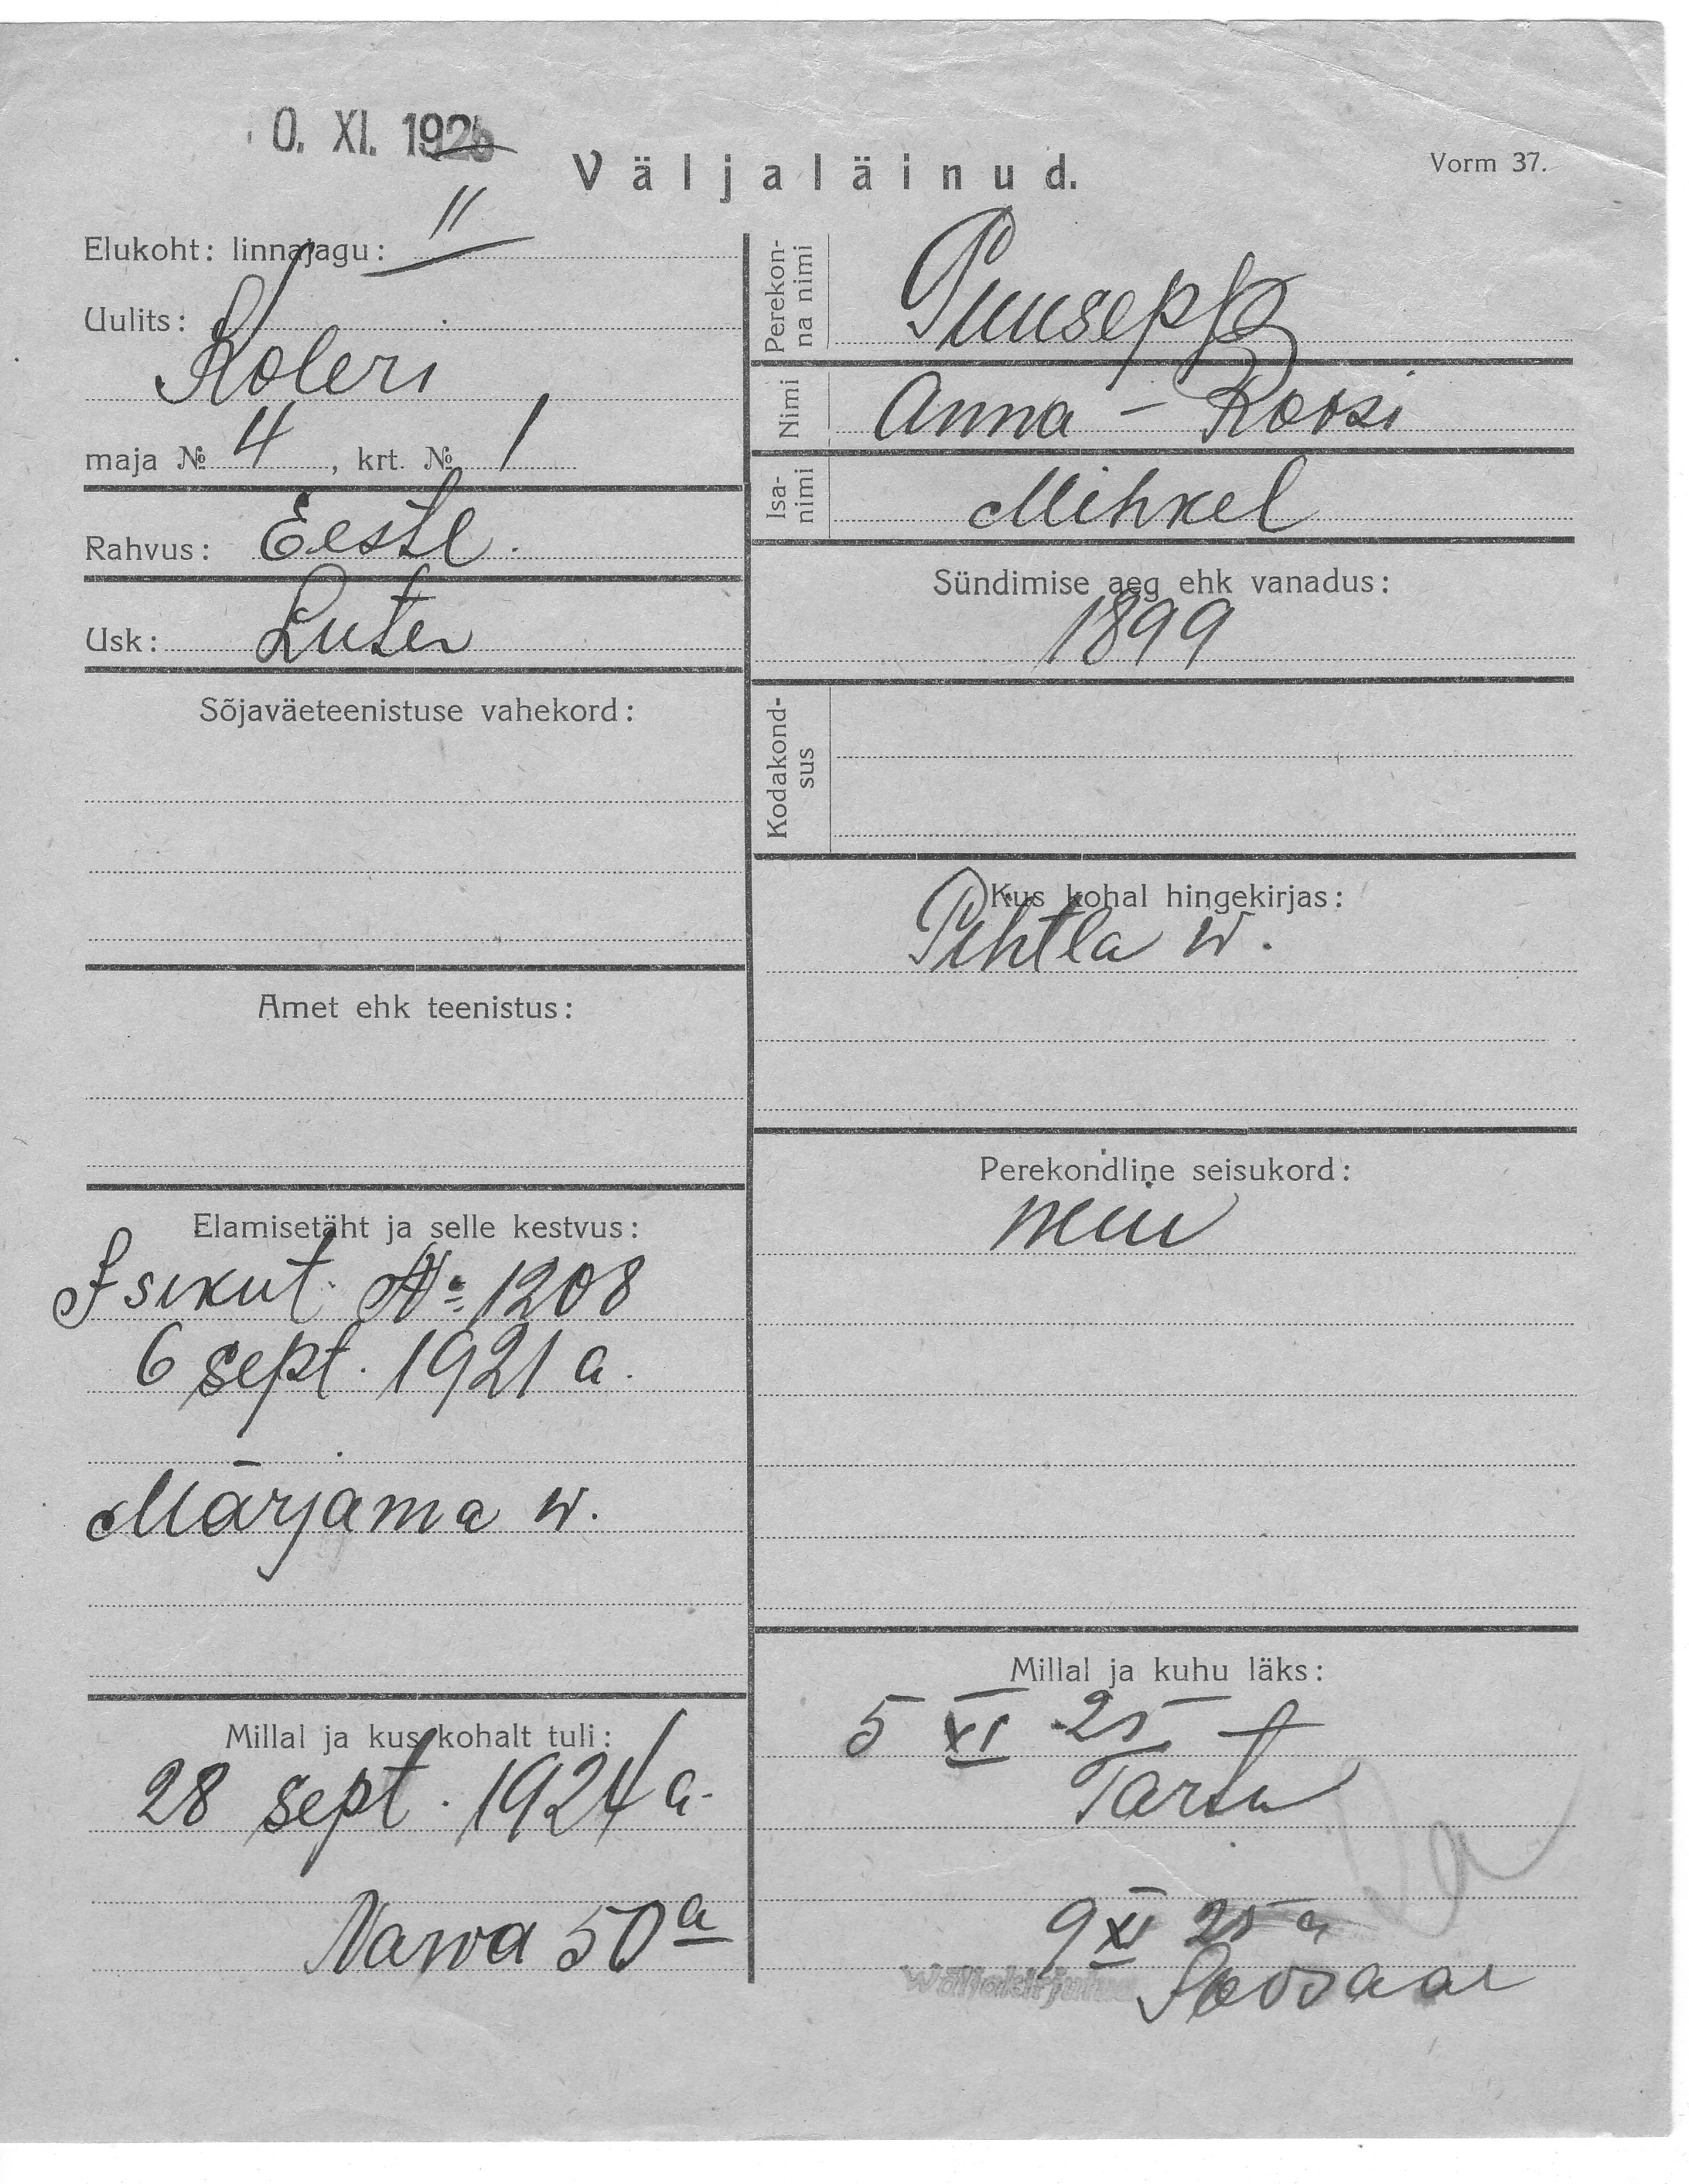 0. XI. 1925
Väljaläinud.
Vorm 37.
Elukoht: linnajagu: II
Uulits:
Koleri
maja № 4, krt. № 1
Rahvus: Eestl.
Usk: Luter
Sõjaväeteenistuse vahekord:
Amet ehk teenistus:
Elamisetäht ja selle kestvus:
Isikut. № 1208
6 sept. 1921 a.
Märjama w.
Millal ja kus kohalt tuli:
28 sept. 1924 a.
Narva 50a
Perekon-
na nimi
Puusepp
Nimi
Anna - Roosi
Isa-
nimi
Mihkel
Sündimise aeg ehk vanadus:
1899
Kodakond-
sus
Kus kohal hingekirjas:
Pihtla w.
Perekondline seisukord:
neiu
Millal ja kuhu läks:
5 XI 25
Tartu
9 XI 25 a
Wäljakirjutud